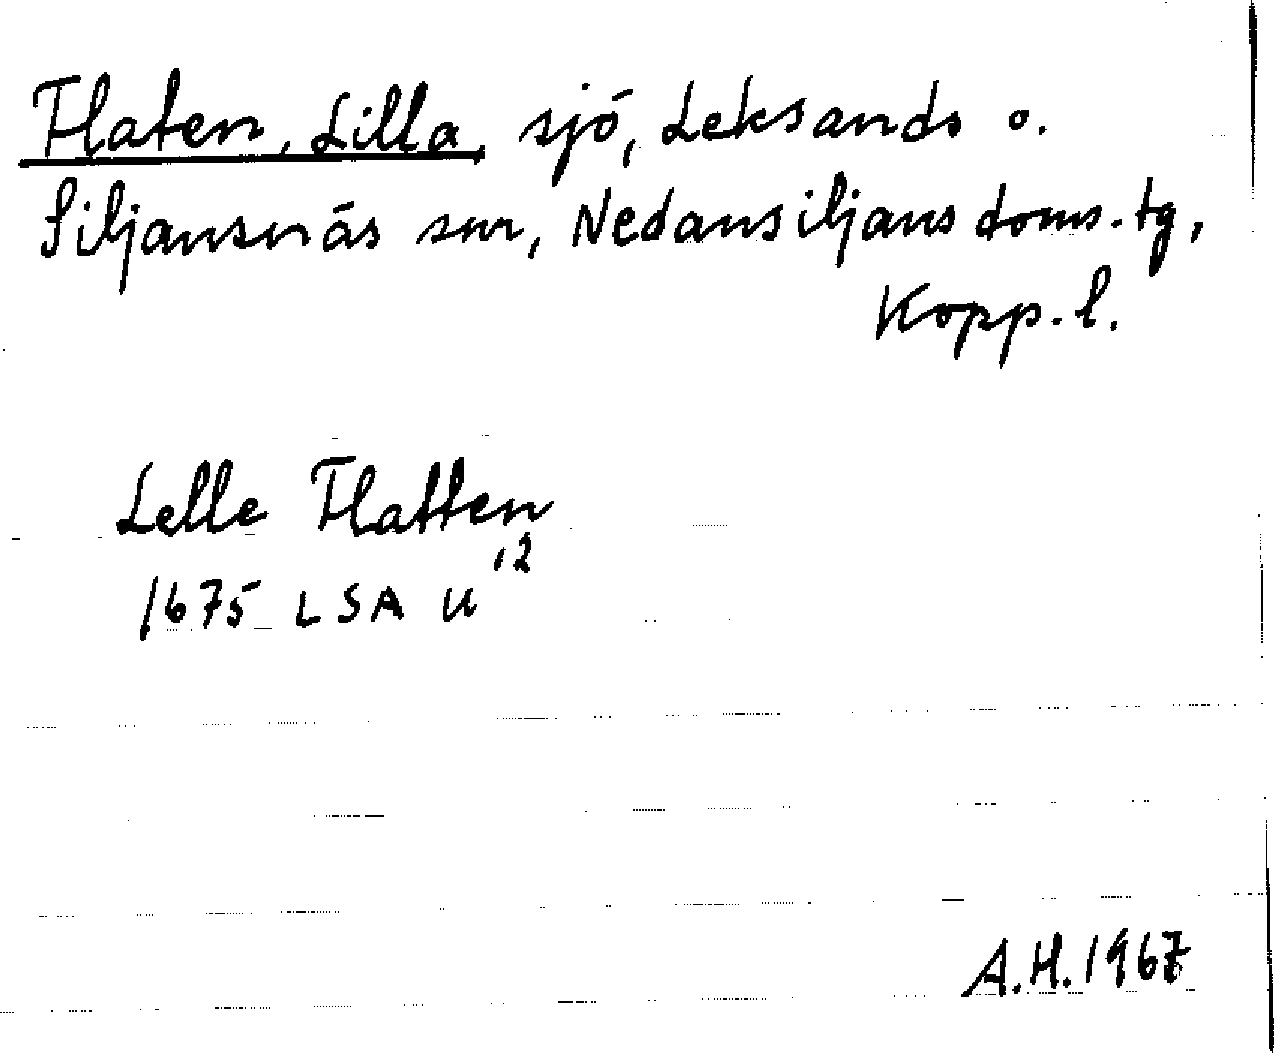 Flaten, Lilla, sjö, Leksands o.
Siljansnäs snr, Nedansiljans doms. tg,
Kopp. l.
Lelle Flatten
1675 LSA U 12
A.H. 1967